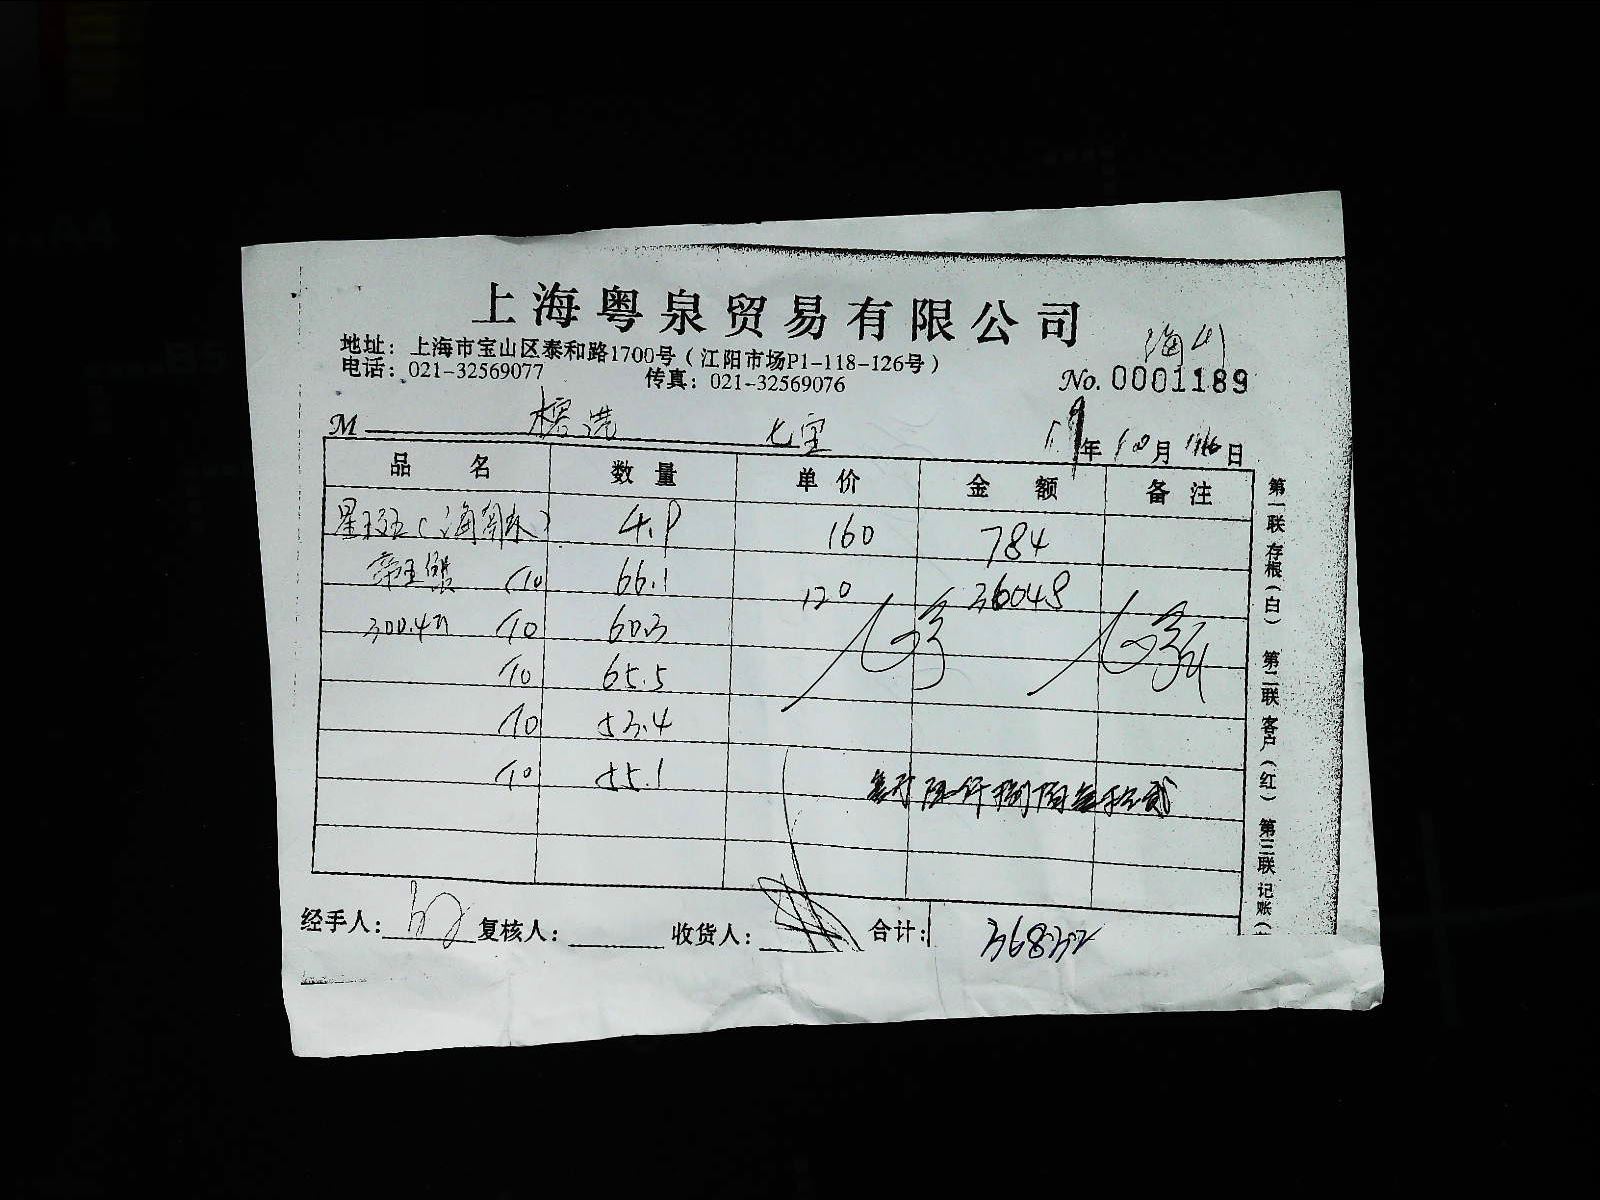 上海粤泉贸易有限公司
地址：上海市宝山区泰和路1700号（江阳市场P1-118-126号）
电话：021-32569077 传真：021-32569076
No. 0001189
M 榕港 七宝 19年 10月 日
品 名 数 量 单 价 金 额 备 注
4.9 160 784
10 66.1 120 36048
10 60.3
10 65.5
10 53.4
10 55.1
叁万陆仟捌佰叁拾贰
经手人： 复核人： 收货人： 合计： 36832
第一联 存根（白） 第二联 客户（红） 第三联 记账（